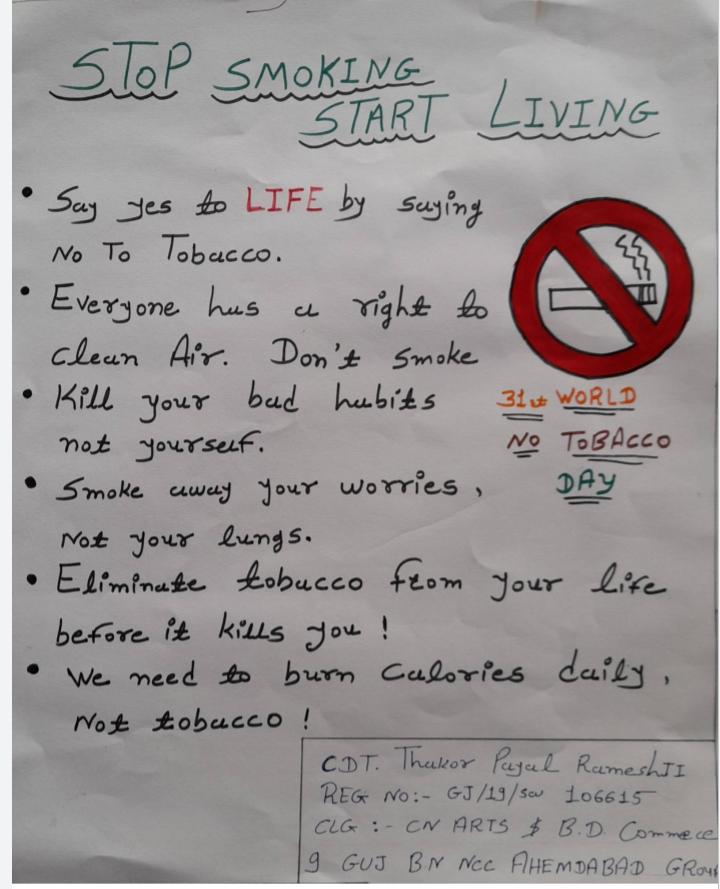 STOP SMOKING
START LIVING
• Say yes to LIFE by saying
No To Tobacco.
• Everyone has a right to
Clean Air. Don't smoke
• Kill your bad habits
not yourself.
31st WORLD
NO TOBACCO
DAY
• Smoke away your worries,
Not your lungs.
• Eliminate tobacco from your life
before it kills you !
• We need to burn calories daily,
Not tobacco !
CDT. Thakor Payal RameshJI
REG No:- GJ/19/SW 106615
CLG :- CN ARTS & B.D. Commece
9 GUJ BN NCC AHEMDABAD GRou